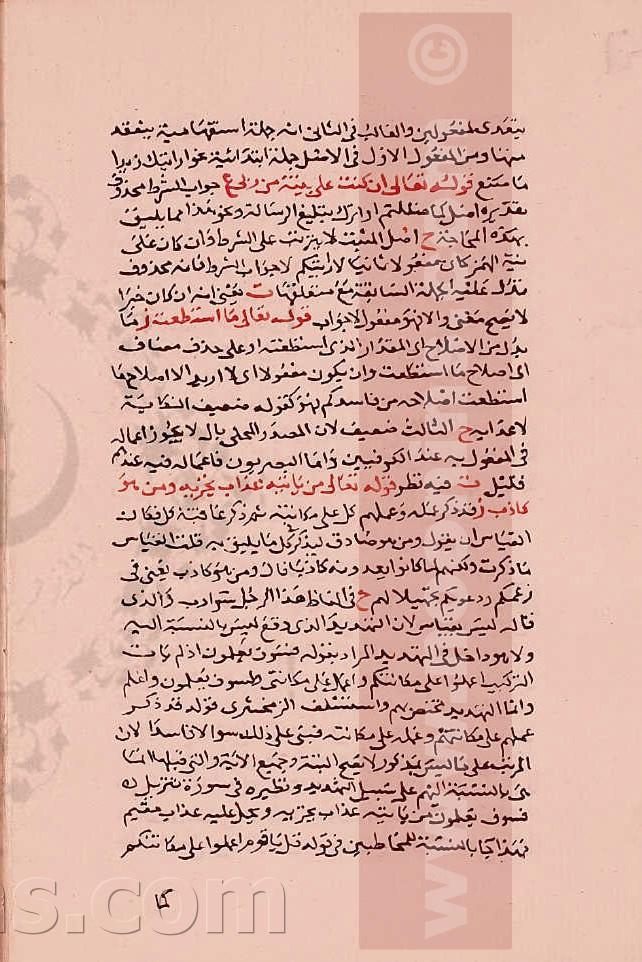 يتعدى لمفعولين والغالب فى الثانى انه جملة استفهامية ينعقد
منها ومن المفعول الاول فى الاصل جملة ابتدائية نحو ارايتك زيدا
ما صنع قوله تعالى ان كنت على بينة من ربى ع جواب الشرط محذوف
تقديره اضل كما ضللتم او اترك تبليغ الرسالة ونحو هذا مما يليق
بهذه المحاجة ح اضل المثبت لا يترتب على الشرط وان كان على
نية الهمز كان مفعولا ثانيا لارايتم لا جواب الشرط فانه محذوف
تدل عليه الجملة السابقة مع متعلقها ت يعنى انه ان كان خبرا
لا يصح معنى والا فهو مفعول لا جواب قوله تعالى ما استطعت ز ما
بدل من الاصلاح اى المقدار الذى استطعته او على حذف مضاف
اى اصلاح ما استطعت وان يكون مفعولا اى لا اريد الا اصلاح ما
استطعت اصلاحه من فاسدكم فهو كقوله ضعيف النكاية
لاعدايه ح الثالث ضعيف لان المصدر المحلى بال لا يجوز اعماله
فى المفعول به عند الكوفيين واما البصريون فاعماله فيه عندهم
قليل ت فيه نظر قوله تعالى من ياتيه عذاب يخزيه ومن هو
كاذب ز قد ذكر عمله وعملهم كل على مكانته ثم ذكر عاقبة كل فكان
القياس ان يقول ومن هو صادق ليذكر كل ما يليق به قلت القياس
ما ذكرت ولكنهم لما كانوا يعدونه كاذبا قال ومن هو كاذب يعنى فى
زعمكم ودعوكم تجهيلا لهم ح فى الفاظ هذا الرجل سوادب والذى
قاله ليس بقياس لان التهديد الذى وقع ليس بالنسبة اليه
ولا هو داخل فى التهديد المراد بقوله فسوف تعلمون اذ لم يات
التركيب اعملوا على مكانتكم واعمل على مكانتى فسوف تعلمون واعلم
وانما التهديد مختص بهم واستسلف الزمخشرى قوله قد ذكر
عملهم على مكانتهم وعمله على مكانته فبنى على ذلك سوالا فاسدا لان
المرتب على ما ليس بمذكور لا يصح البتة وجميع الاية والتى قبلها انما
هى بالنسبة اليهم على سبيل التهديد ونظيره فى سورة تنزيل
فسوف تعلمون من ياتيه عذاب يخزيه ويحل عليه عذاب مقيم
فهذا جا بالنسبة للمخاطبين فى قوله قل يا قوم اعملوا على مكانتكم
كما